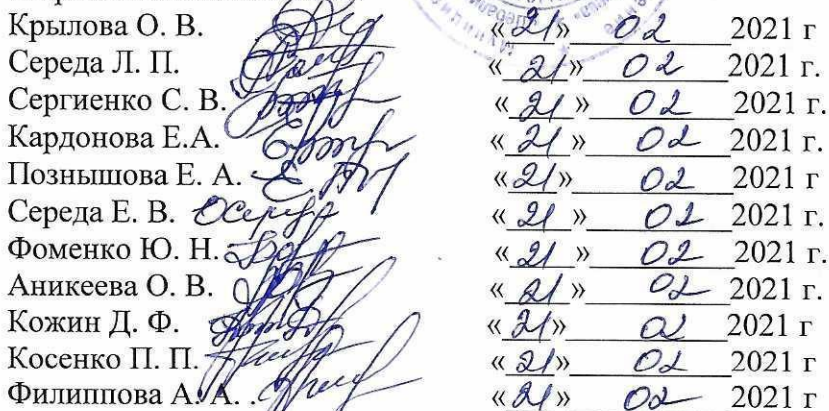 Крылова О. В. «21» 02 2021 г
Середа Л. П. «21» 02 2021 г.
Сергиенко С. В. «21» 02 2021 г.
Кардонова Е.А. «21» 02 2021 г.
Познышова Е. А. «21» 02 2021 г
Середа Е. В. «21» 02 2021 г.
Фоменко Ю. Н. «21» 02 2021 г.
Аникеева О. В. «21» 02 2021 г.
Кожин Д. Ф. «21» 02 2021 г
Косенко П. П. «21» 02 2021 г
Филиппова А. А. «21» 02 2021 г